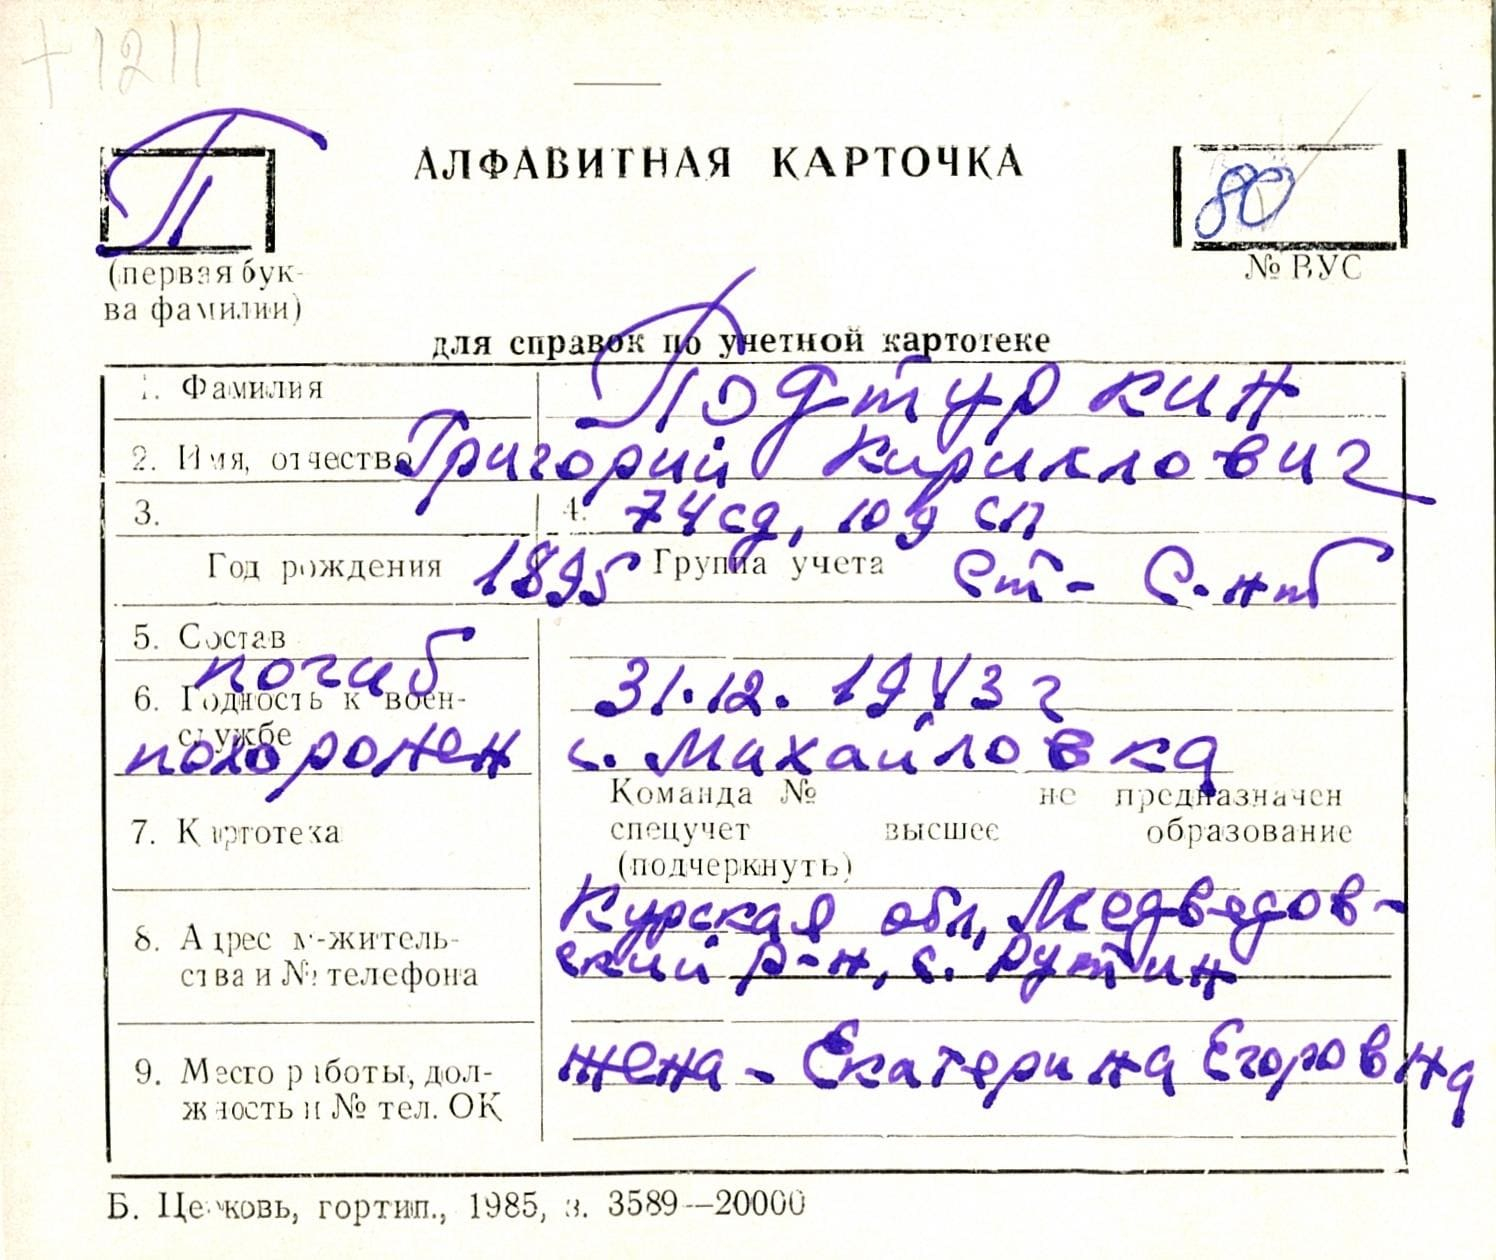 +1211
П
АЛФАВИТНАЯ КАРТОЧКА
80
(первая бук-
ва фамилии)
№ ВУС
для справок по учетной картотеке
1. Фамилия Подтуркин
2. Имя, отчество Григорий Кириллович
3. 4. 74 сд, 109 сп
Год рождения 1895 Группа учета Ст- С-нт
5. Состав
погиб 31.12.1943 г
6. Годность к воен-
службе
похоронен с. Михайловка
Команда № не предназначен
7. Картотека спецучет высшее образование
(подчеркнуть)
Курская обл, Медведов-
8. Адрес м-житель- ский р-н, с. Рутин
ства и № телефона
9. Место работы, дол- жена - Екатерина Егоровна
жность и № тел. ОК
Б. Церковь, гортип., 1985, з. 3589—20000